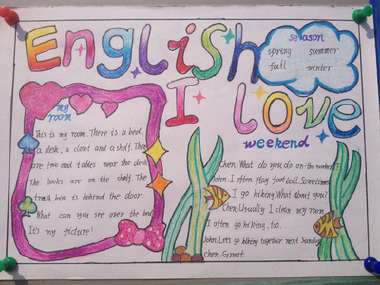 English
I Love
season
spring summer
fall winter
my
room
This is my room. There is a bed,
a desk, a closet and a shelf. There
are two end tables near the desk
The books are on the shelf. The
trash bin is behind the door
What can you see over the bed
It's my picture!
weekend
Chen: What do you do on the weekend?
John: I often play football. Sometimes
I go hiking. What about you?
Chen: Usually I clean my room
I often go hiking, too.
John: Let's go hiking together next Sunday
Chen: Great.